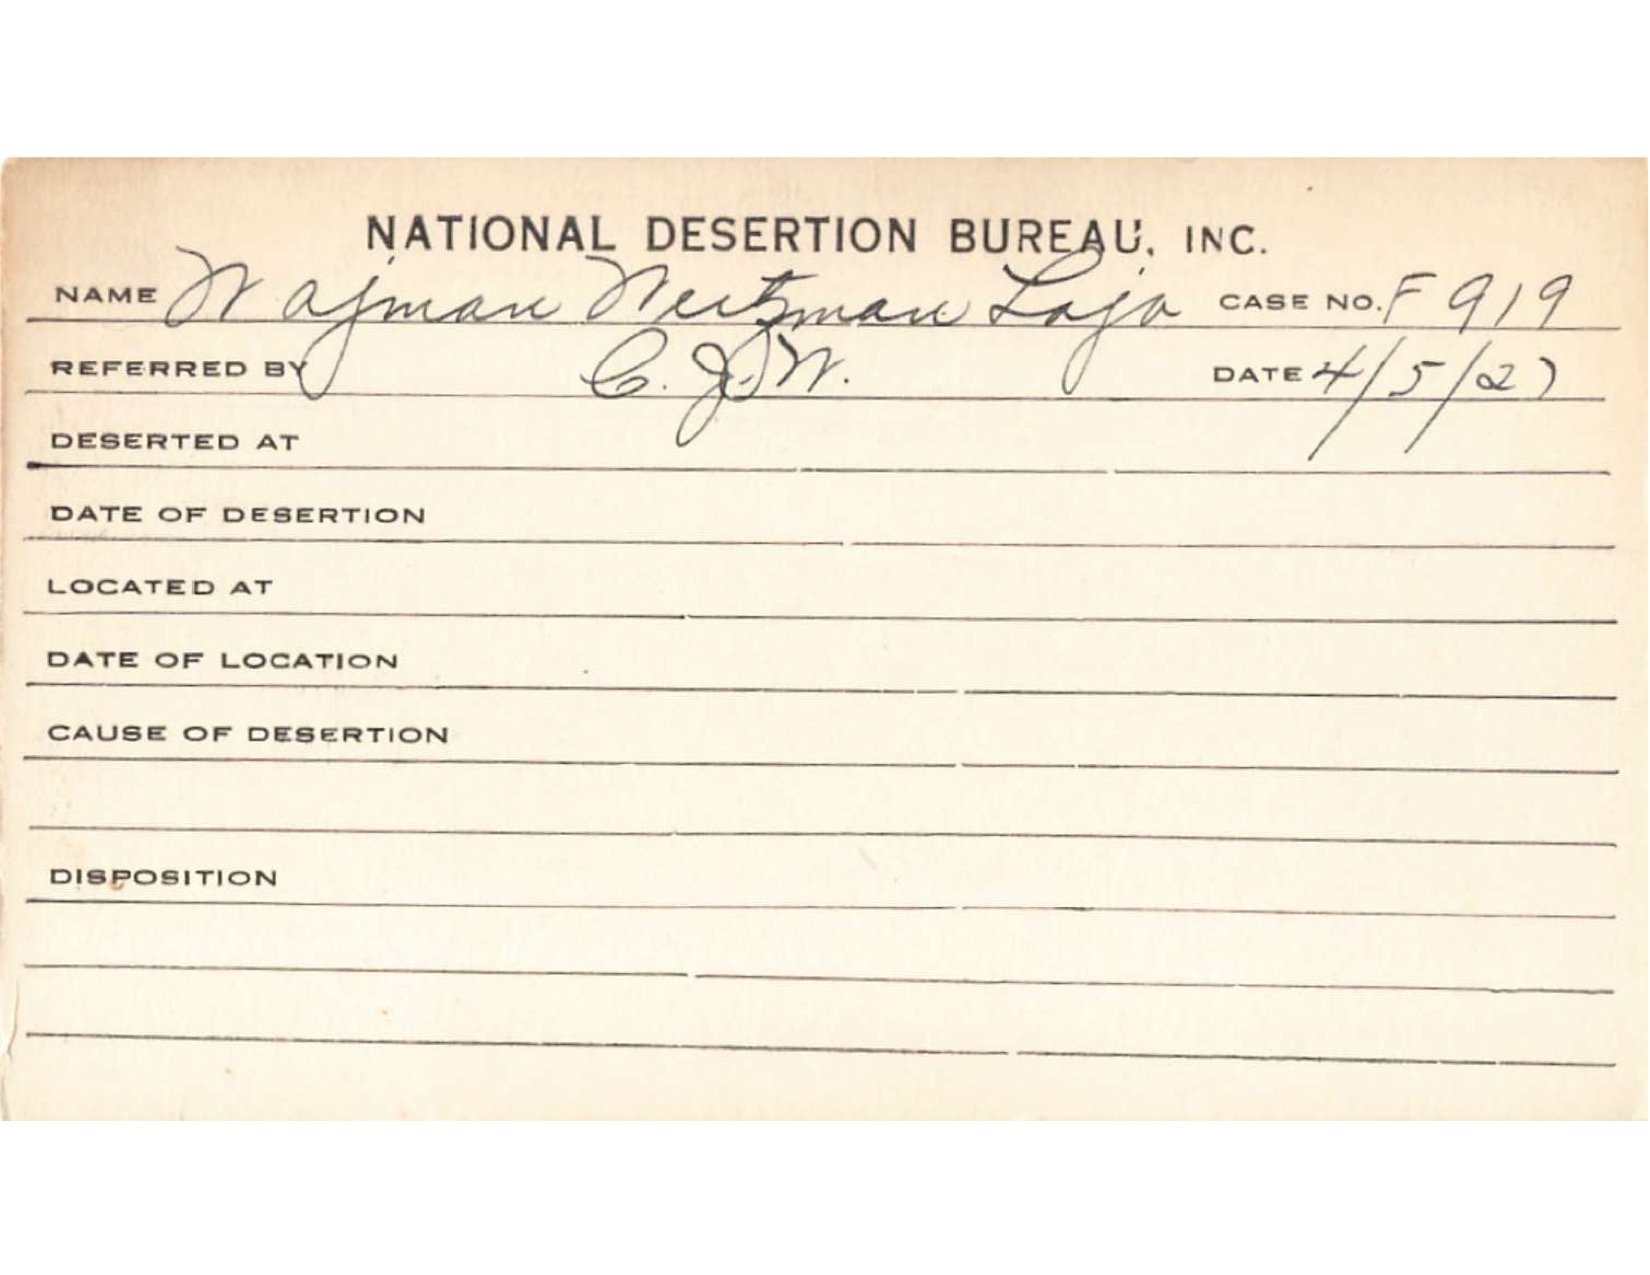 NATIONAL DESERTION BUREAU, INC.
NAME Wajman Weitzman Laja CASE NO. F 919
REFERRED BY C. J. W. DATE 4/5/27
DESERTED AT
DATE OF DESERTION
LOCATED AT
DATE OF LOCATION
CAUSE OF DESERTION
DISPOSITION